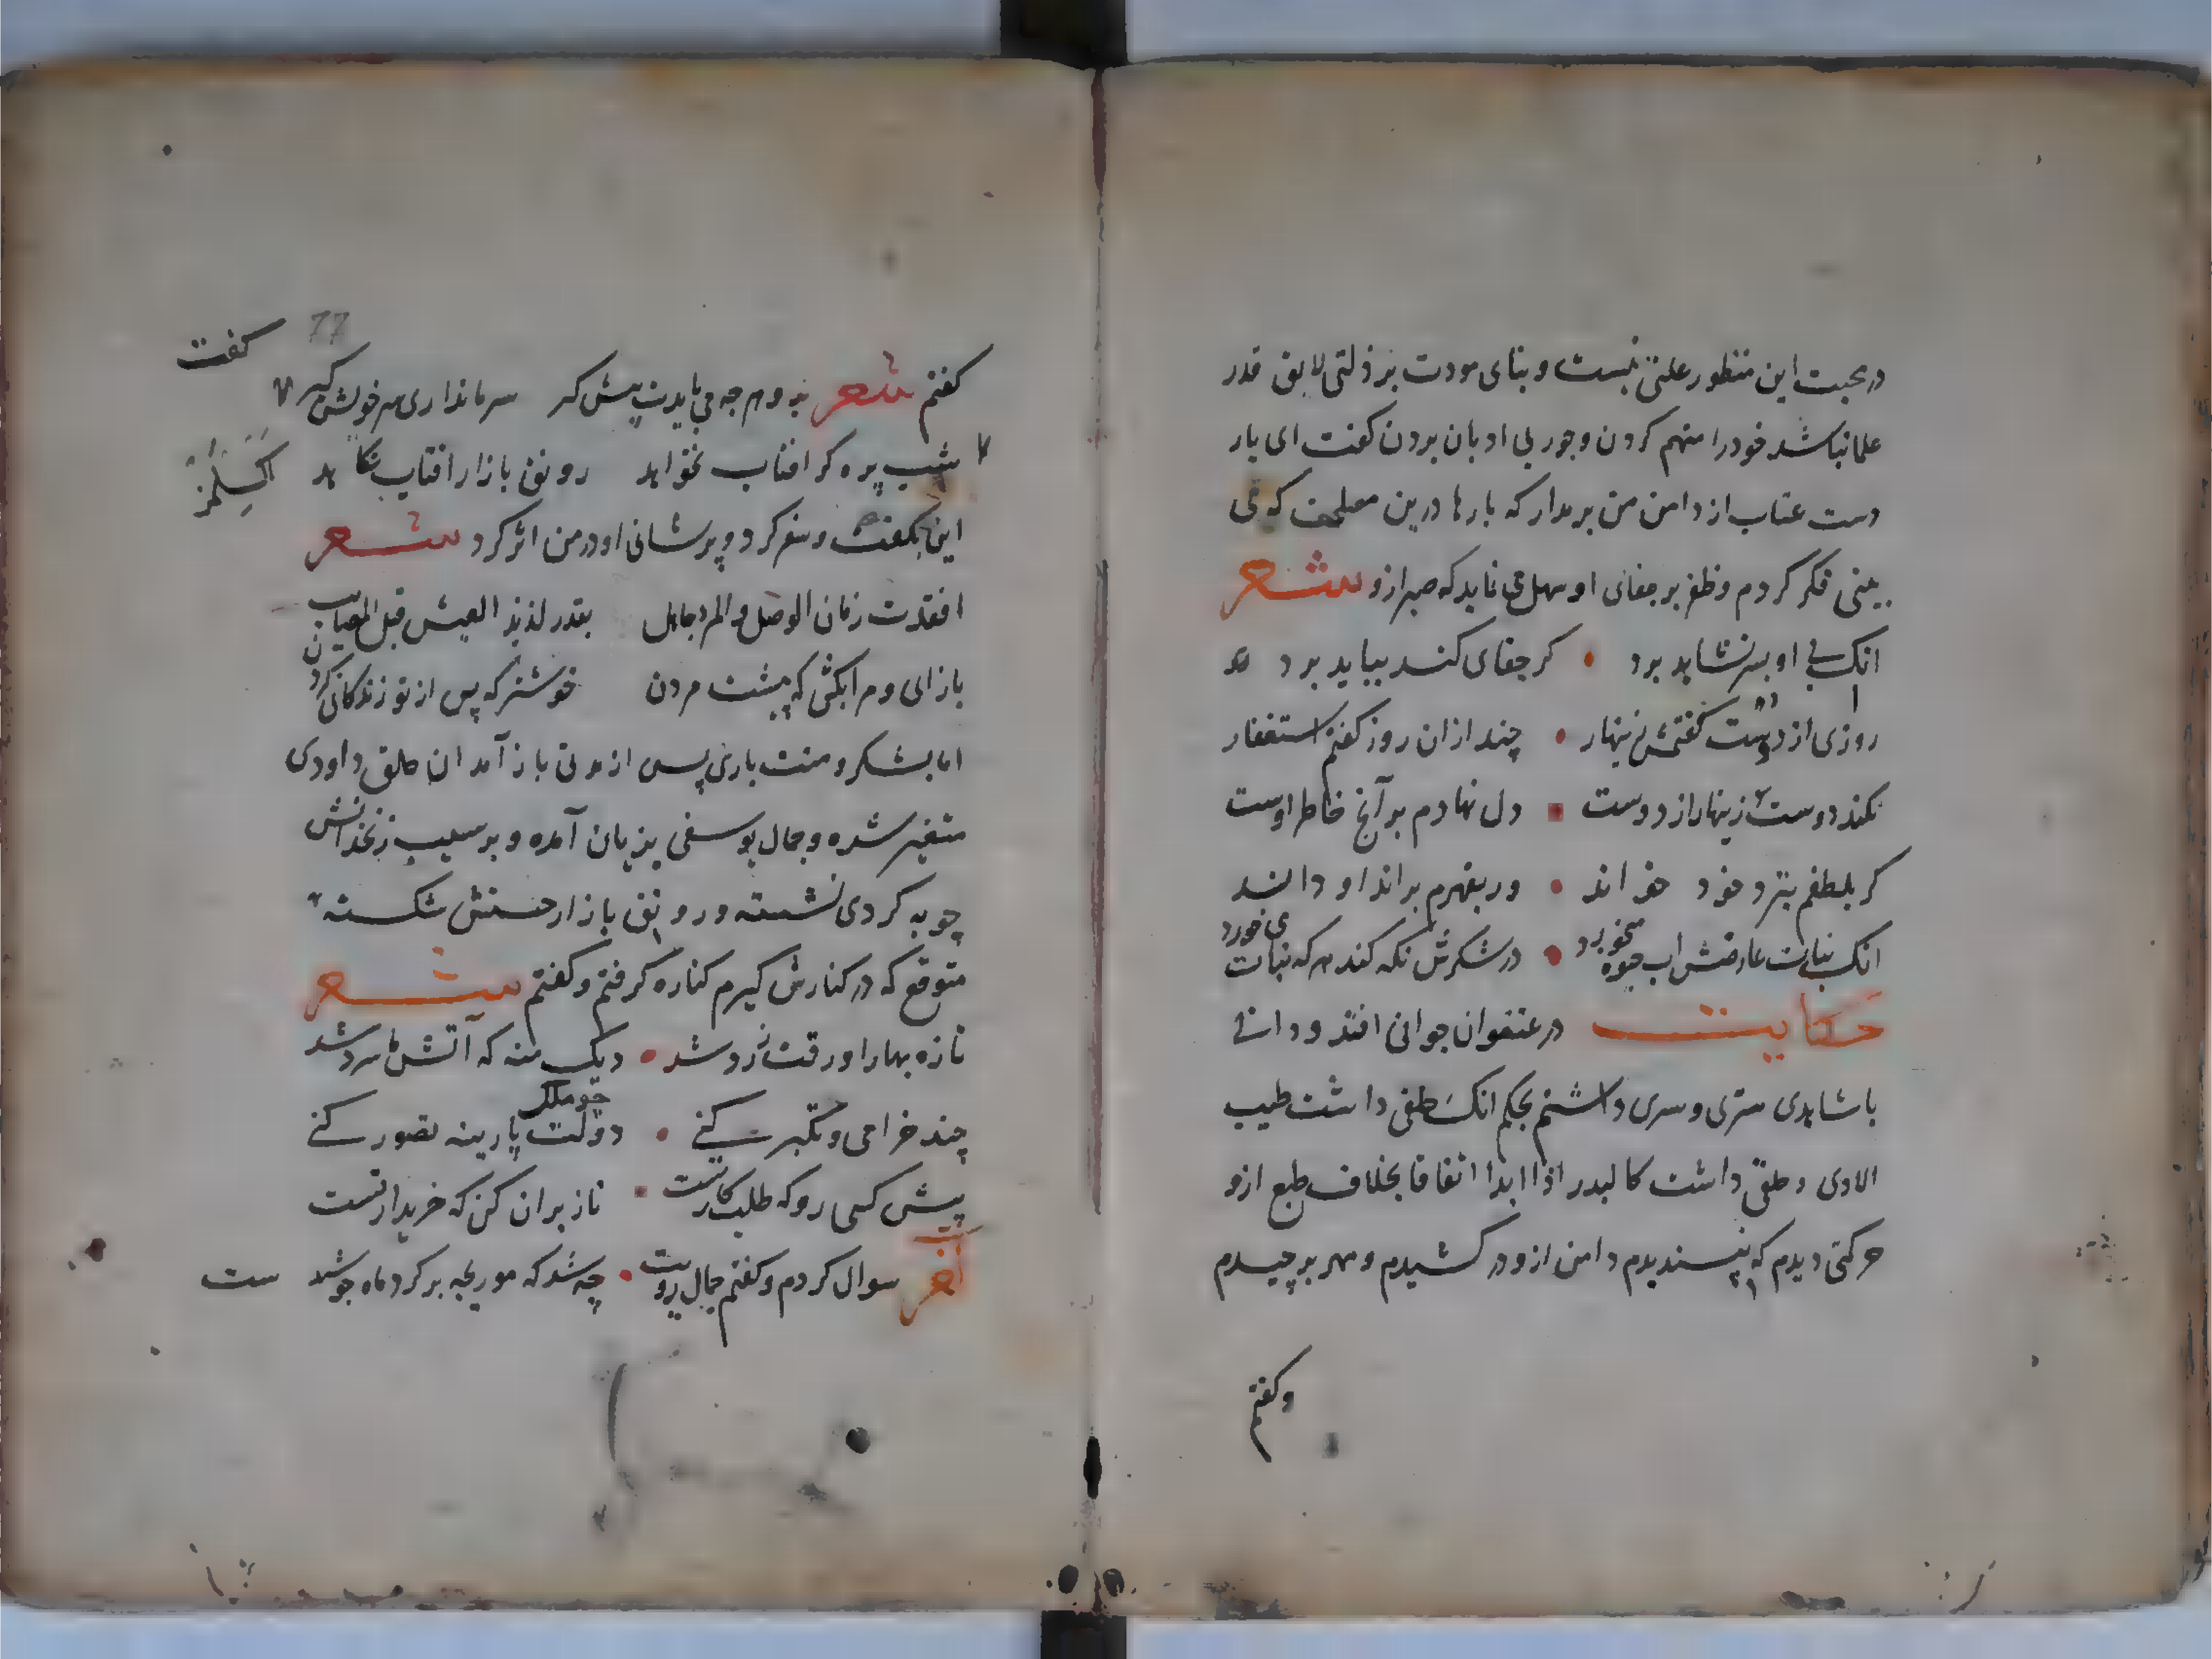 در محبت این منظور علتی نیست و بنای مودت بر ذلتی لایق قدر
علما نباشد خود را متهم کردن و جور بی ادبان بردن کفت ای یار
دست عتاب از دامن من بر مدار که بارها درین مصلحت که می
بینی فکر کردم و صبر بر جفای او سهل می نماید که صبر ازو شعر
انک بی او بسر نشاید برد • کر جفای کند بباید برد
روزی از دوست کفتمش زینهار • چند ازان روز کفتم استغفار
نکند دوست زینهار از دوست • دل نهادم بر آنچ خاطر اوست
کر بلطفم بنزد خود خواند • ور بقهرم براند او داند
انک نبات عارضش اب حیوة میخورد • در شکرش نکه کند هر که نبات می خورد
حکایت در عنفوان جوانی افتد و دانی
با شاهدی ستری و سری داشتم بحکم انک حلقی داشت طیب
الادی و خلقی داشت کالبدر اذا ابدا اتفاقا بخلاف طبع ازو
حرکتی دیدم که نپسندیدم دامن ازو در کشیدم و مهر برچیدم
و کفتم
77
کفت
کفتم شعر برو هر چه می بایدت پیش کیر سر ما نداری سر خویش کیر
شب پره کر افتاب نخواهد رونق بازار افتاب نکاهد
این بکفت و سفر کرد و پریشانی او در من اثر کرد شعر
افقدت زمان الوصل والمرء جاهل بقدر لذیذ العیش قبل المصایب
باز ای و مرا بکش که پیشت مردن خوشتر که پس از تو زندکانی کردن
اما بشکر و منت باری پس از مدتی باز آمد ان حلق داودی
متغیر شده و جمال یوسفی بزیان آمده و بر سیب زنخدانش
چو به کردی نشسته و رونق بازار حسنش شکسته
متوقع که در کنارش کیرم کناره کرفتم و کفتم شعر
تازه بهارا ورقت زرد شد • دیک منه که آتش ما سرد شد
چند خرامی و تکبر کنی • دولت پارینه تصور کنی
پیش کسی رو که طلبکار تست • ناز بران کن که خریدار تست
آخر سوال کردم و کفتم جمال رویت • چه شد که مورچه بر کرد ماه جوشیدست